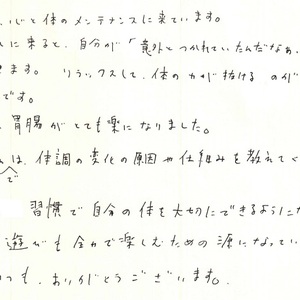 心と体のメンテナンスに来ています。
に来ると、自分が「意外とつかれていたんだなぁ、
きます。 リラックスして、体の力が抜ける のが
です。
胃腸がとても楽になりました。
は、体調の変化の原因や仕組みを教えてく
で
習慣で自分の体を大切にできるようにな
遊びも全力で楽しむための源になってい
つも、ありがとうございます。